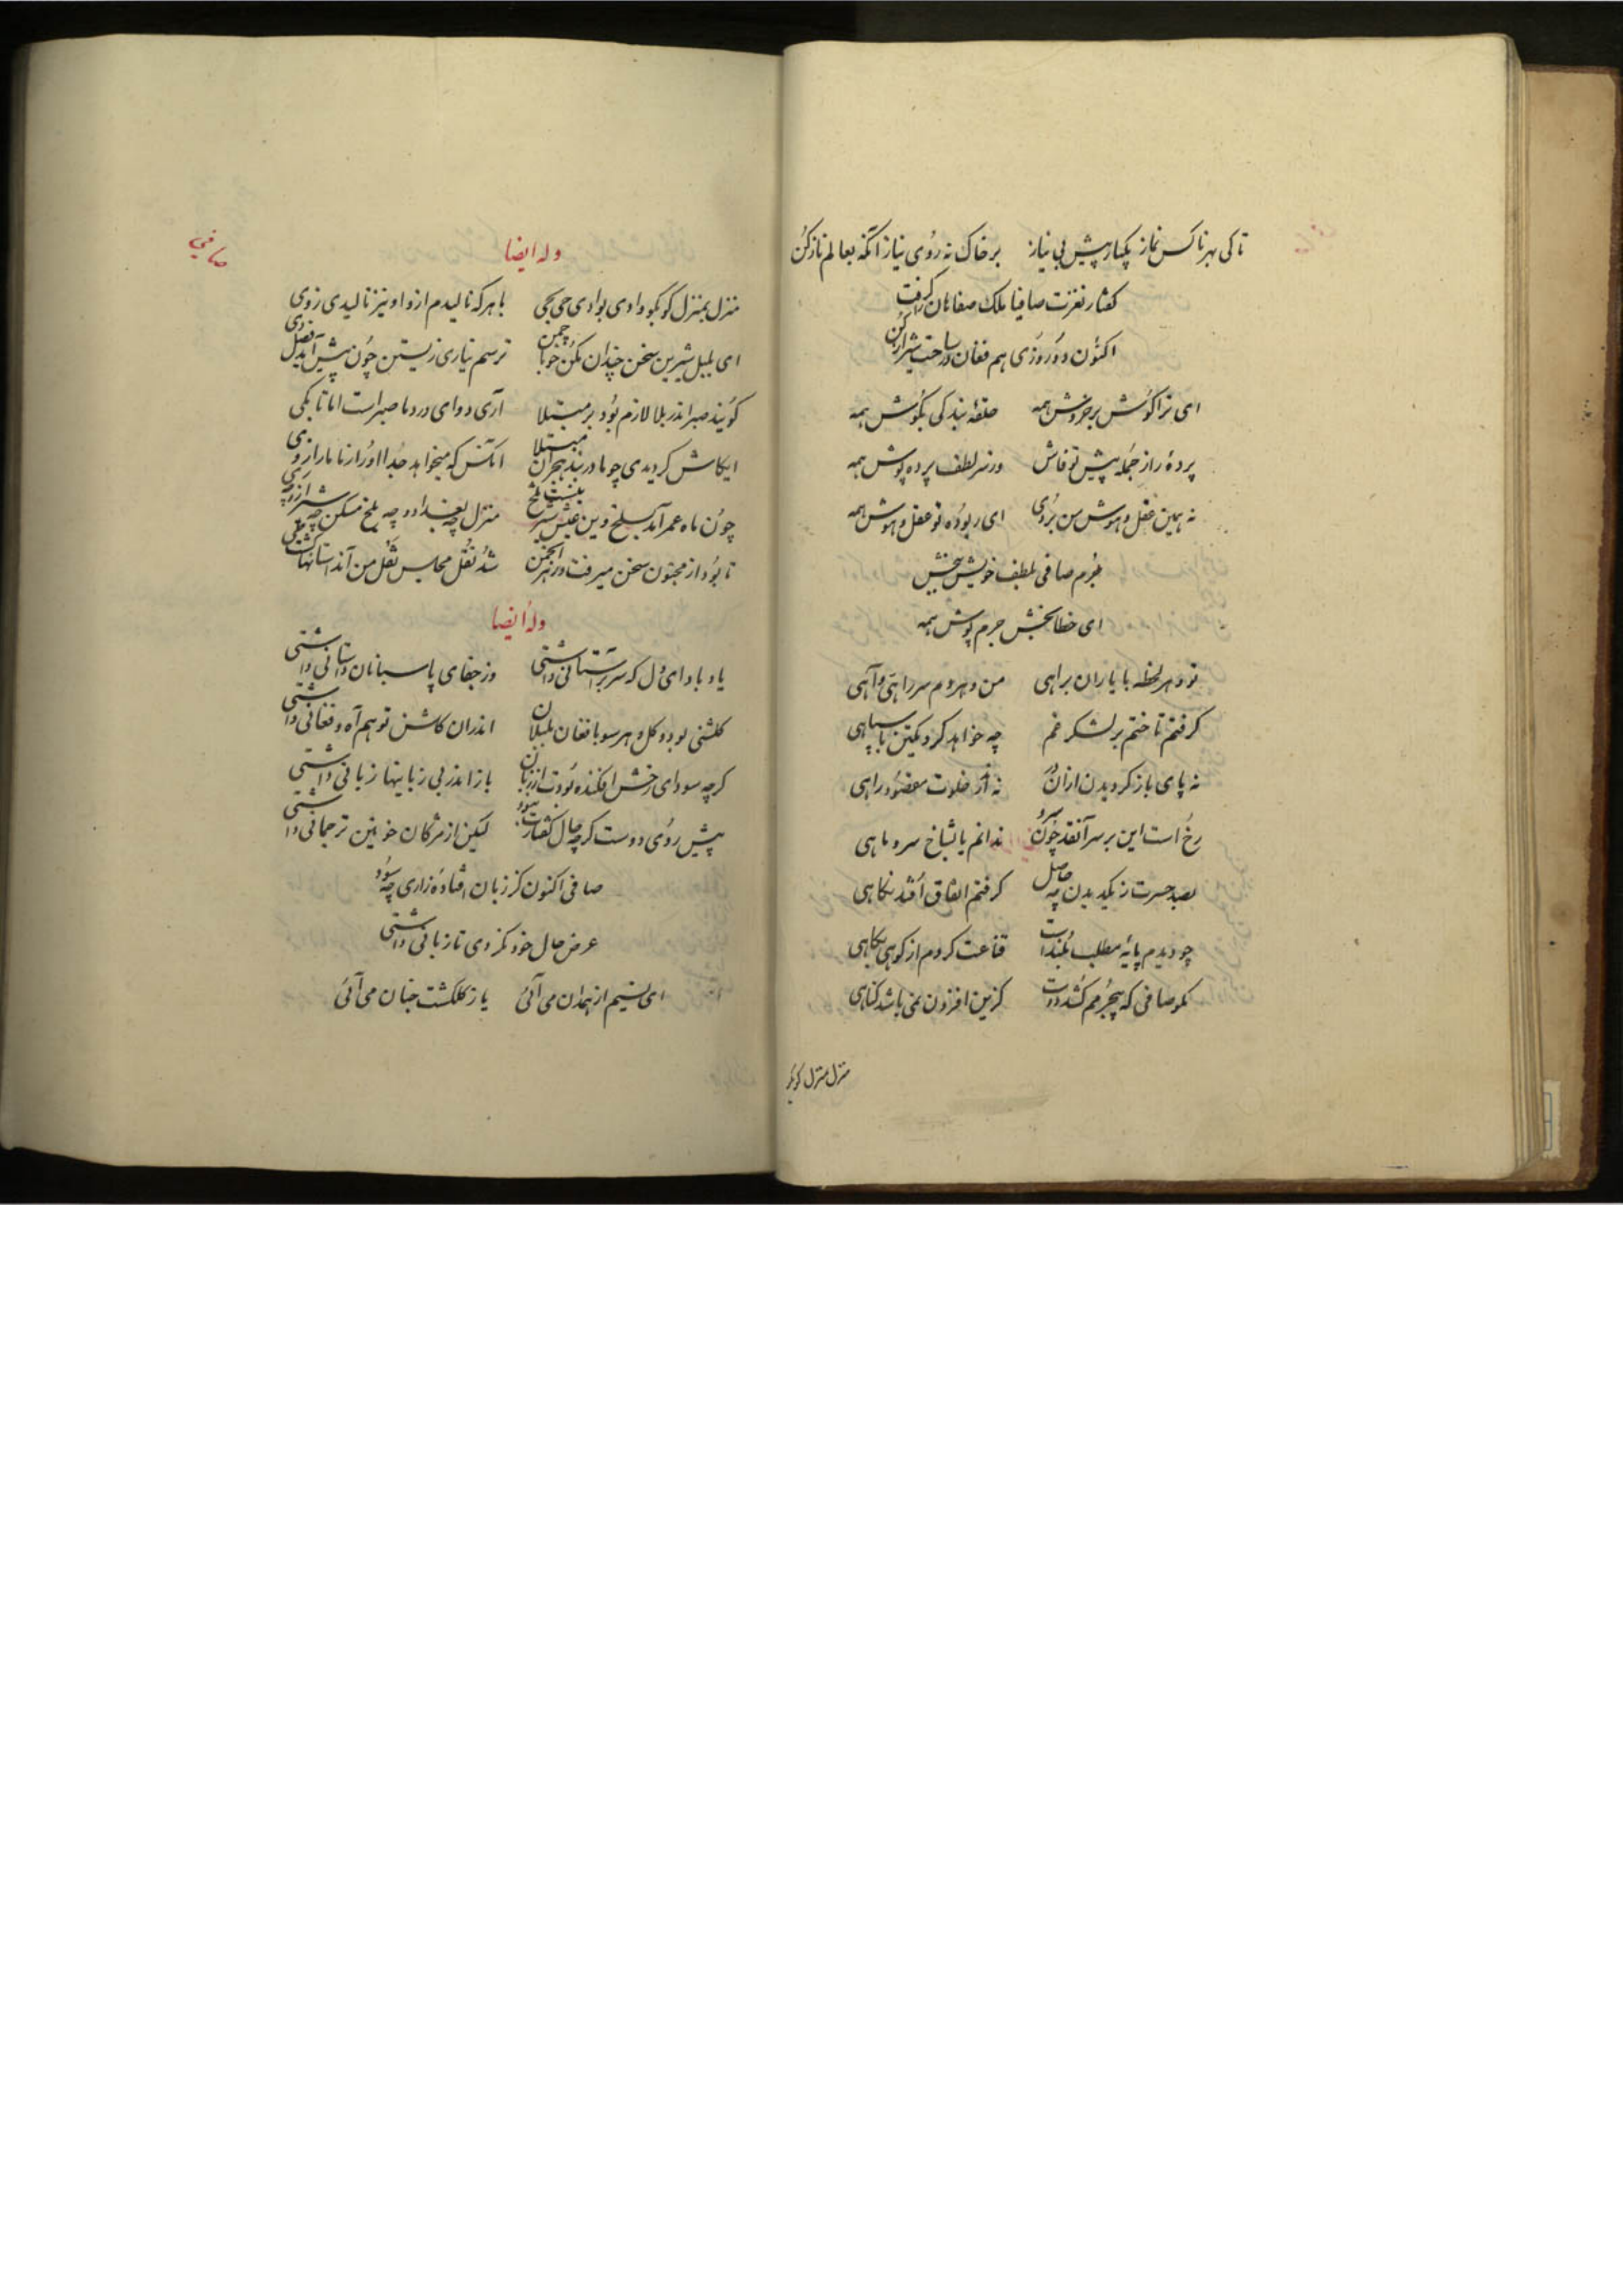 تا کی بهر ناکس نماز یکبار پیش بی نیاز بر خاک نه روی نیاز آنگه بعالم ناز کن
گفتار نغزت صافیا ملک صفاهان را گرفت
اکنون دو روزی هم فغان در ساحت شیراز کن
ای ترا گوش بر خروش همه حلقهٔ بندگی بگوش همه
پردهٔ راز جمله پیش تو فاش وز سر لطف پرده پوش همه
نه همین عقل و هوش من بردی ای ربوده تو عقل و هوش همه
جرم صافی بلطف خویش ببخش
ای خطابخش جرم پوش همه
تو و هر لحظه با یاران براهی من و هر دم سر راهی و آهی
گرفتم تاختم بر لشکر غم چه خواهد کرد یکتن با سپاهی
نه پای باز گردیدن از آن در نه از خلوت مقصود راهی
رخ است این بر سر آنقد چون سرو ندانم یا بشاخ سرو ماهی
بصد حسرت ز یکدیدن چه حاصل گرفتم اتفاق افتد نگاهی
چو دیدم پایهٔ مطلب بلند است قناعت کردم از کوهی بکاهی
نگو صافی که بیجرمم کشد دوست گزین افزون نمی باشد گناهی
منزل بمنزل کو بکو
صافی
وله ایضا
منزل بمنزل کو بکو وادی بوادی حی بحی با هر که نالیدم ازو او نیز نالیدی ز وی
ای بلبل شیرین سخن چندان مکن خو با چمن ترسم نیاری زیستن چون پیش آید فصل دی
گویند صبر اندر بلا لازم بود بر مبتلا آری دوای درد ما صبر است اما تا بکی
ایکاش گردیدی چو ما در بند هجران مبتلا آنکس که میخواهد جدا او را ز ما ما را ز وی
چون ماه عمر آمد بسلخ وین عیش شیرین گشت تلخ منزل چه بغداد و چه بلخ مسکن چه شیراز و چه ری
تا بود از مجنون سخن میرفت در هر انجمن شد نقل مجلس نقل من آنداستانها گشت طی
وله ایضا
یاد باد ای دل که سر بر آستانی داشتی وز جفای پاسبانان داستانی داشتی
گلشنی بود و گل و هر سو با فغان بلبلان اندر آن گلشن تو هم آه و فغانی داشتی
گرچه سودای رخش افکنده بودت از زبان باز اندر بی زبانیها زبانی داشتی
پیش روی دوست گرچه حال گفتارت نبود لیکن از مژگان خونین ترجمانی داشتی
صافی اکنون کز زبان افتادهٔ زاری چه سود
عرض حال خود نکردی تا زبانی داشتی
ای نسیم از همدان می آئی یا ز گلگشت جنان می آئی